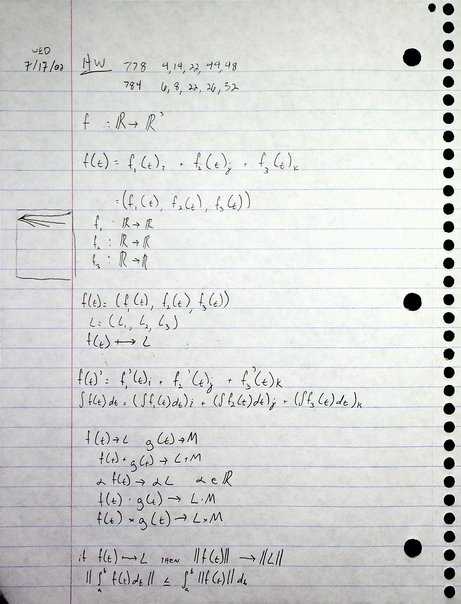 WED
7/17/02
HW 778 4, 14, 22, 44, 48
784 6, 8, 22, 26, 32
f : ℝ → ℝ³
f(t) = f₁(t)i + f₂(t)j + f₃(t)k
= (f₁(t), f₂(t), f₃(t))
f₁ : ℝ → ℝ
f₂ : ℝ → ℝ
f₃ : ℝ → ℝ
f(t) = (f₁(t), f₂(t), f₃(t))
L = (L₁, L₂, L₃)
f(t) ⟼ L
f(t)' = f₁'(t)i + f₂'(t)j + f₃'(t)k
∫f(t)dt = (∫f₁(t)dt)i + (∫f₂(t)dt)j + (∫f₃(t)dt)k
f(t) → L g(t) → M
f(t) + g(t) → L + M
α f(t) → α L α ∈ ℝ
f(t) · g(t) → L · M
f(t) × g(t) → L × M
if f(t) ⟼ L THEN ||f(t)|| → ||L||
||∫ₐᵇ f(t)dt|| ≤ ∫ₐᵇ ||f(t)|| dt